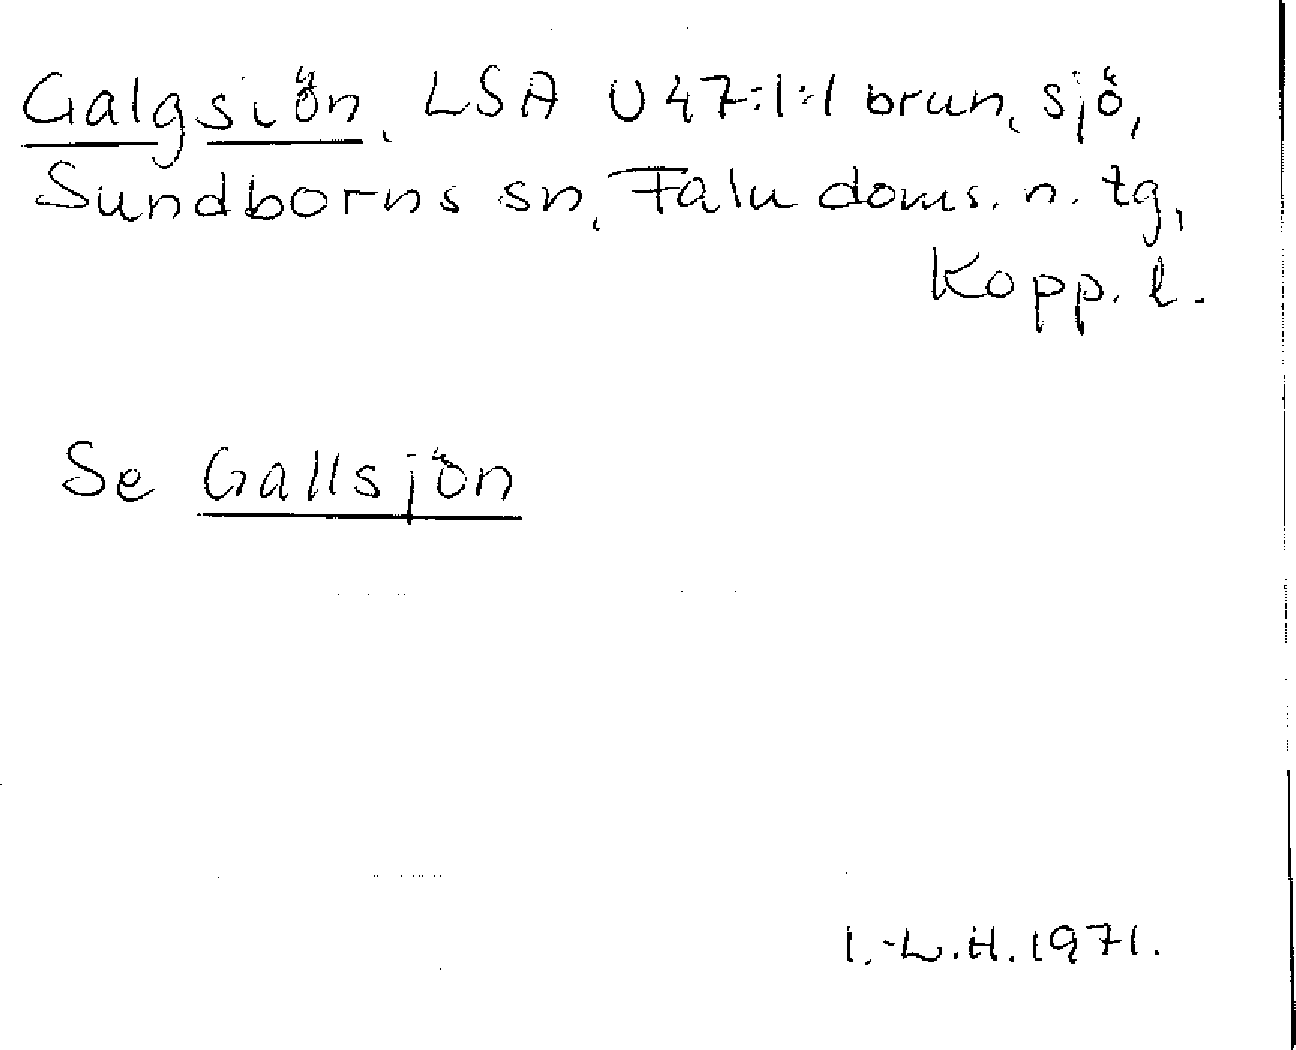 Galgsiön, LSA U47:1:1 brun, sjö,
Sundborns sn, Falu doms. n. tg,
Kopp. l.
Se Gallsjön
I.-L.H. 1971.